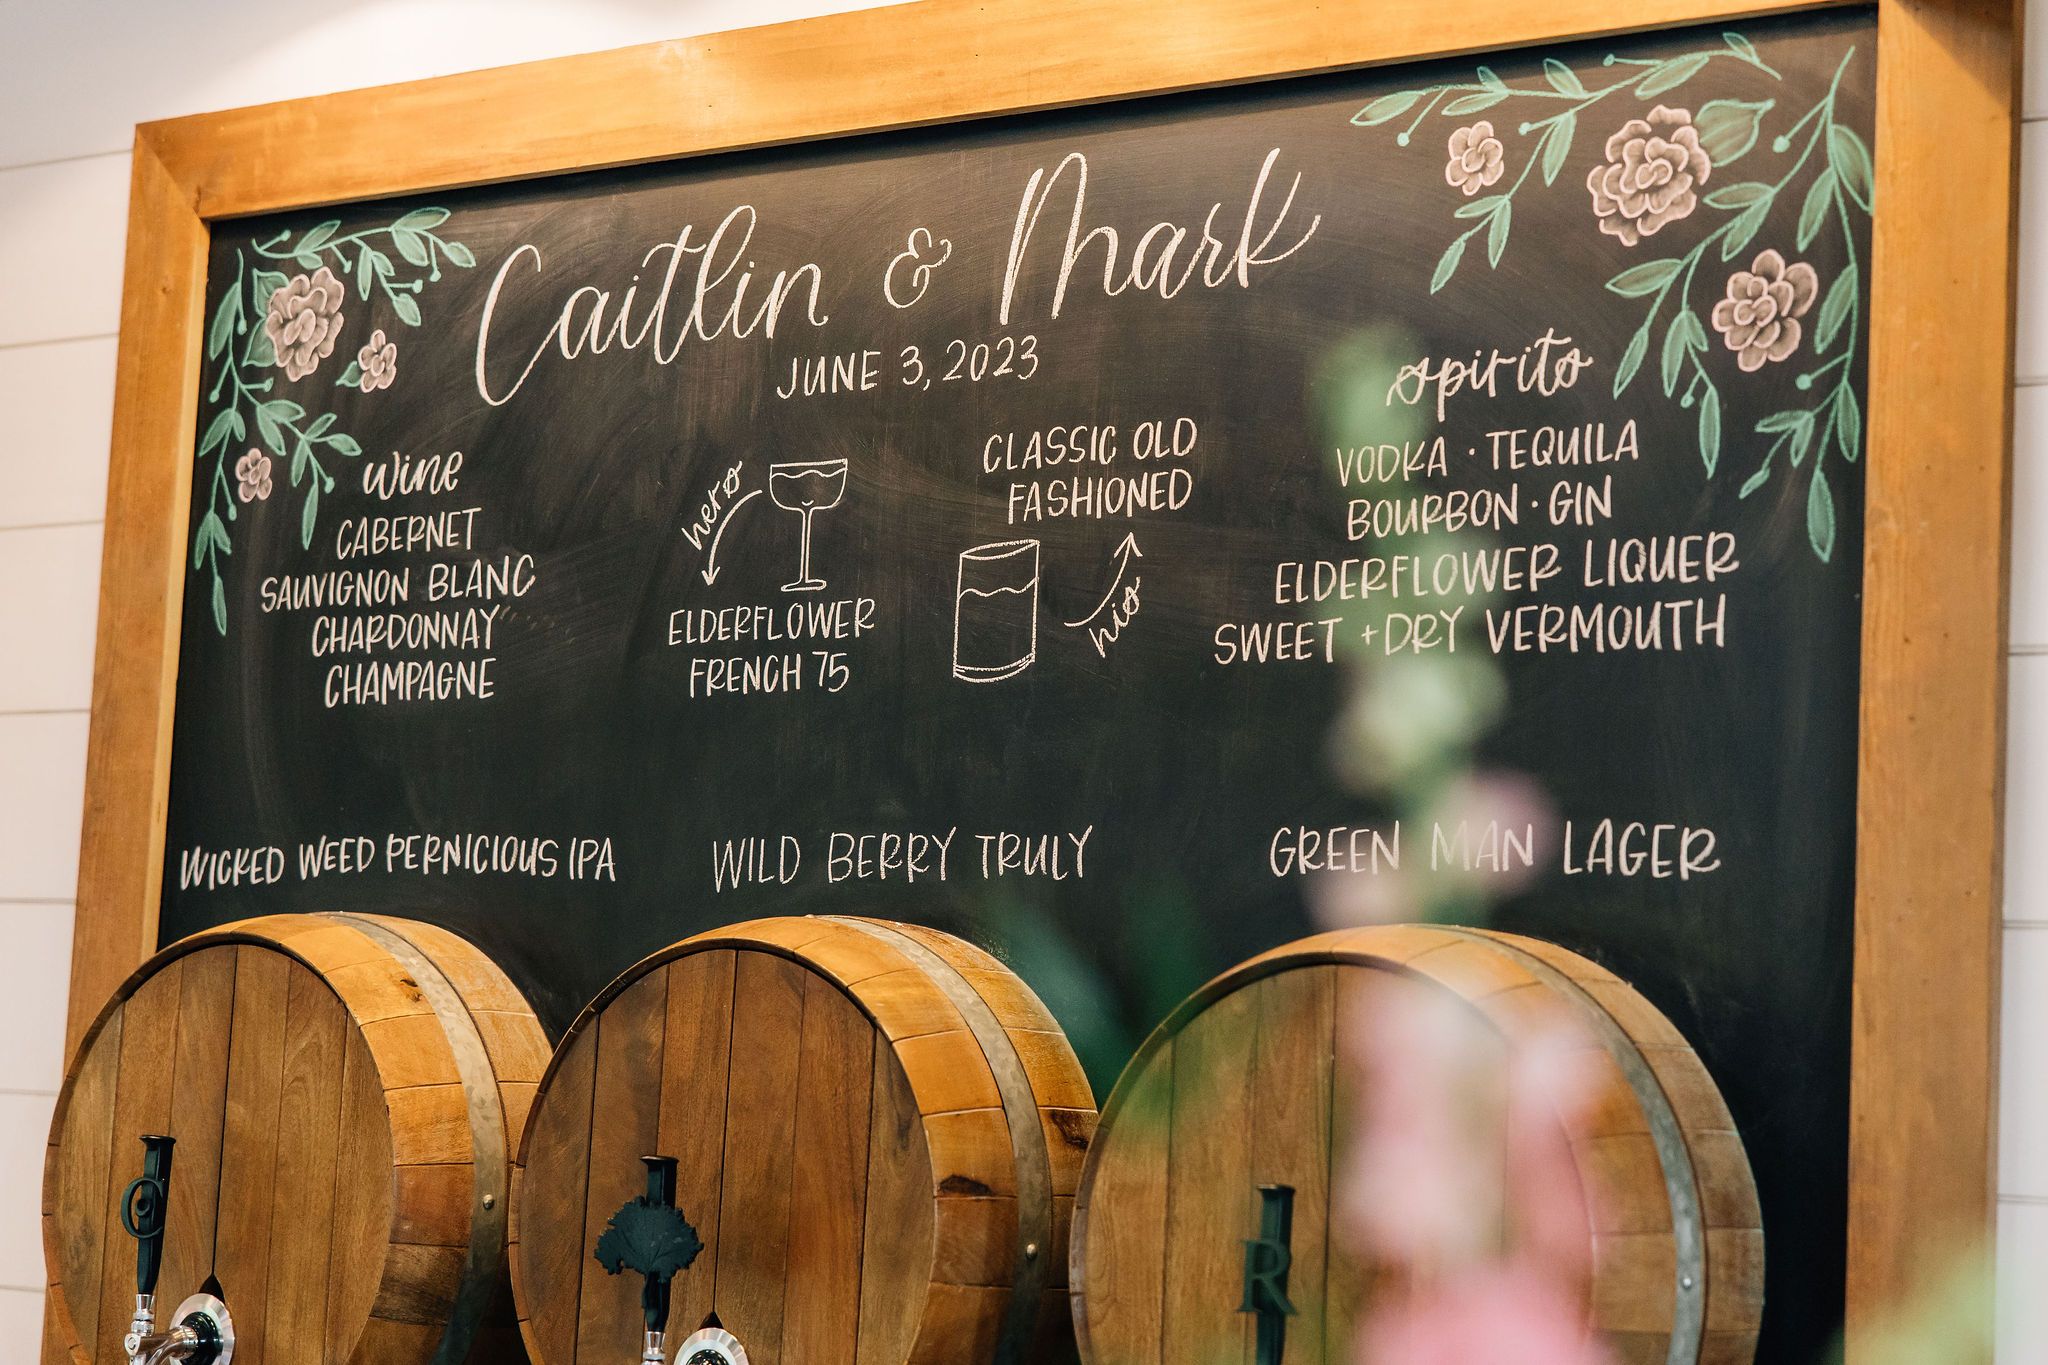 Caitlin & Mark
JUNE 3, 2023
wine
CABERNET
SAUVIGNON BLANC
CHARDONNAY
CHAMPAGNE
hers
ELDERFLOWER
FRENCH 75
CLASSIC OLD
FASHIONED
his
spirits
VODKA · TEQUILA
BOURBON · GIN
ELDERFLOWER LIQUER
SWEET + DRY VERMOUTH
WICKED WEED PERNICIOUS IPA
WILD BERRY TRULY
GREEN MAN LAGER
C
R